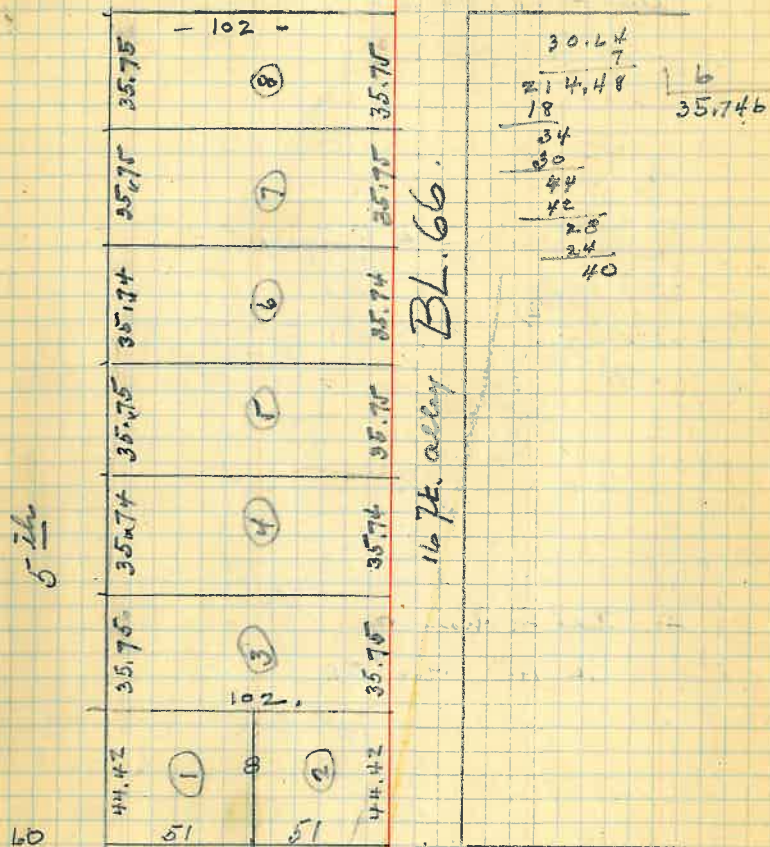 - 102 -
35.75 ⑧ 35.75
35.75 ⑦ 35.75
35.74 ⑥ 35.74
35.75 ⑤ 35.75
35.74 ④ 35.74
35.75 ③ 35.75
102.
44.42 ① ② 44.42
51 51
60
5th
16 Ft. alley BL. 66.
30.64
7
214.48 6
18 35.746
34
30
44
42
28
24
40